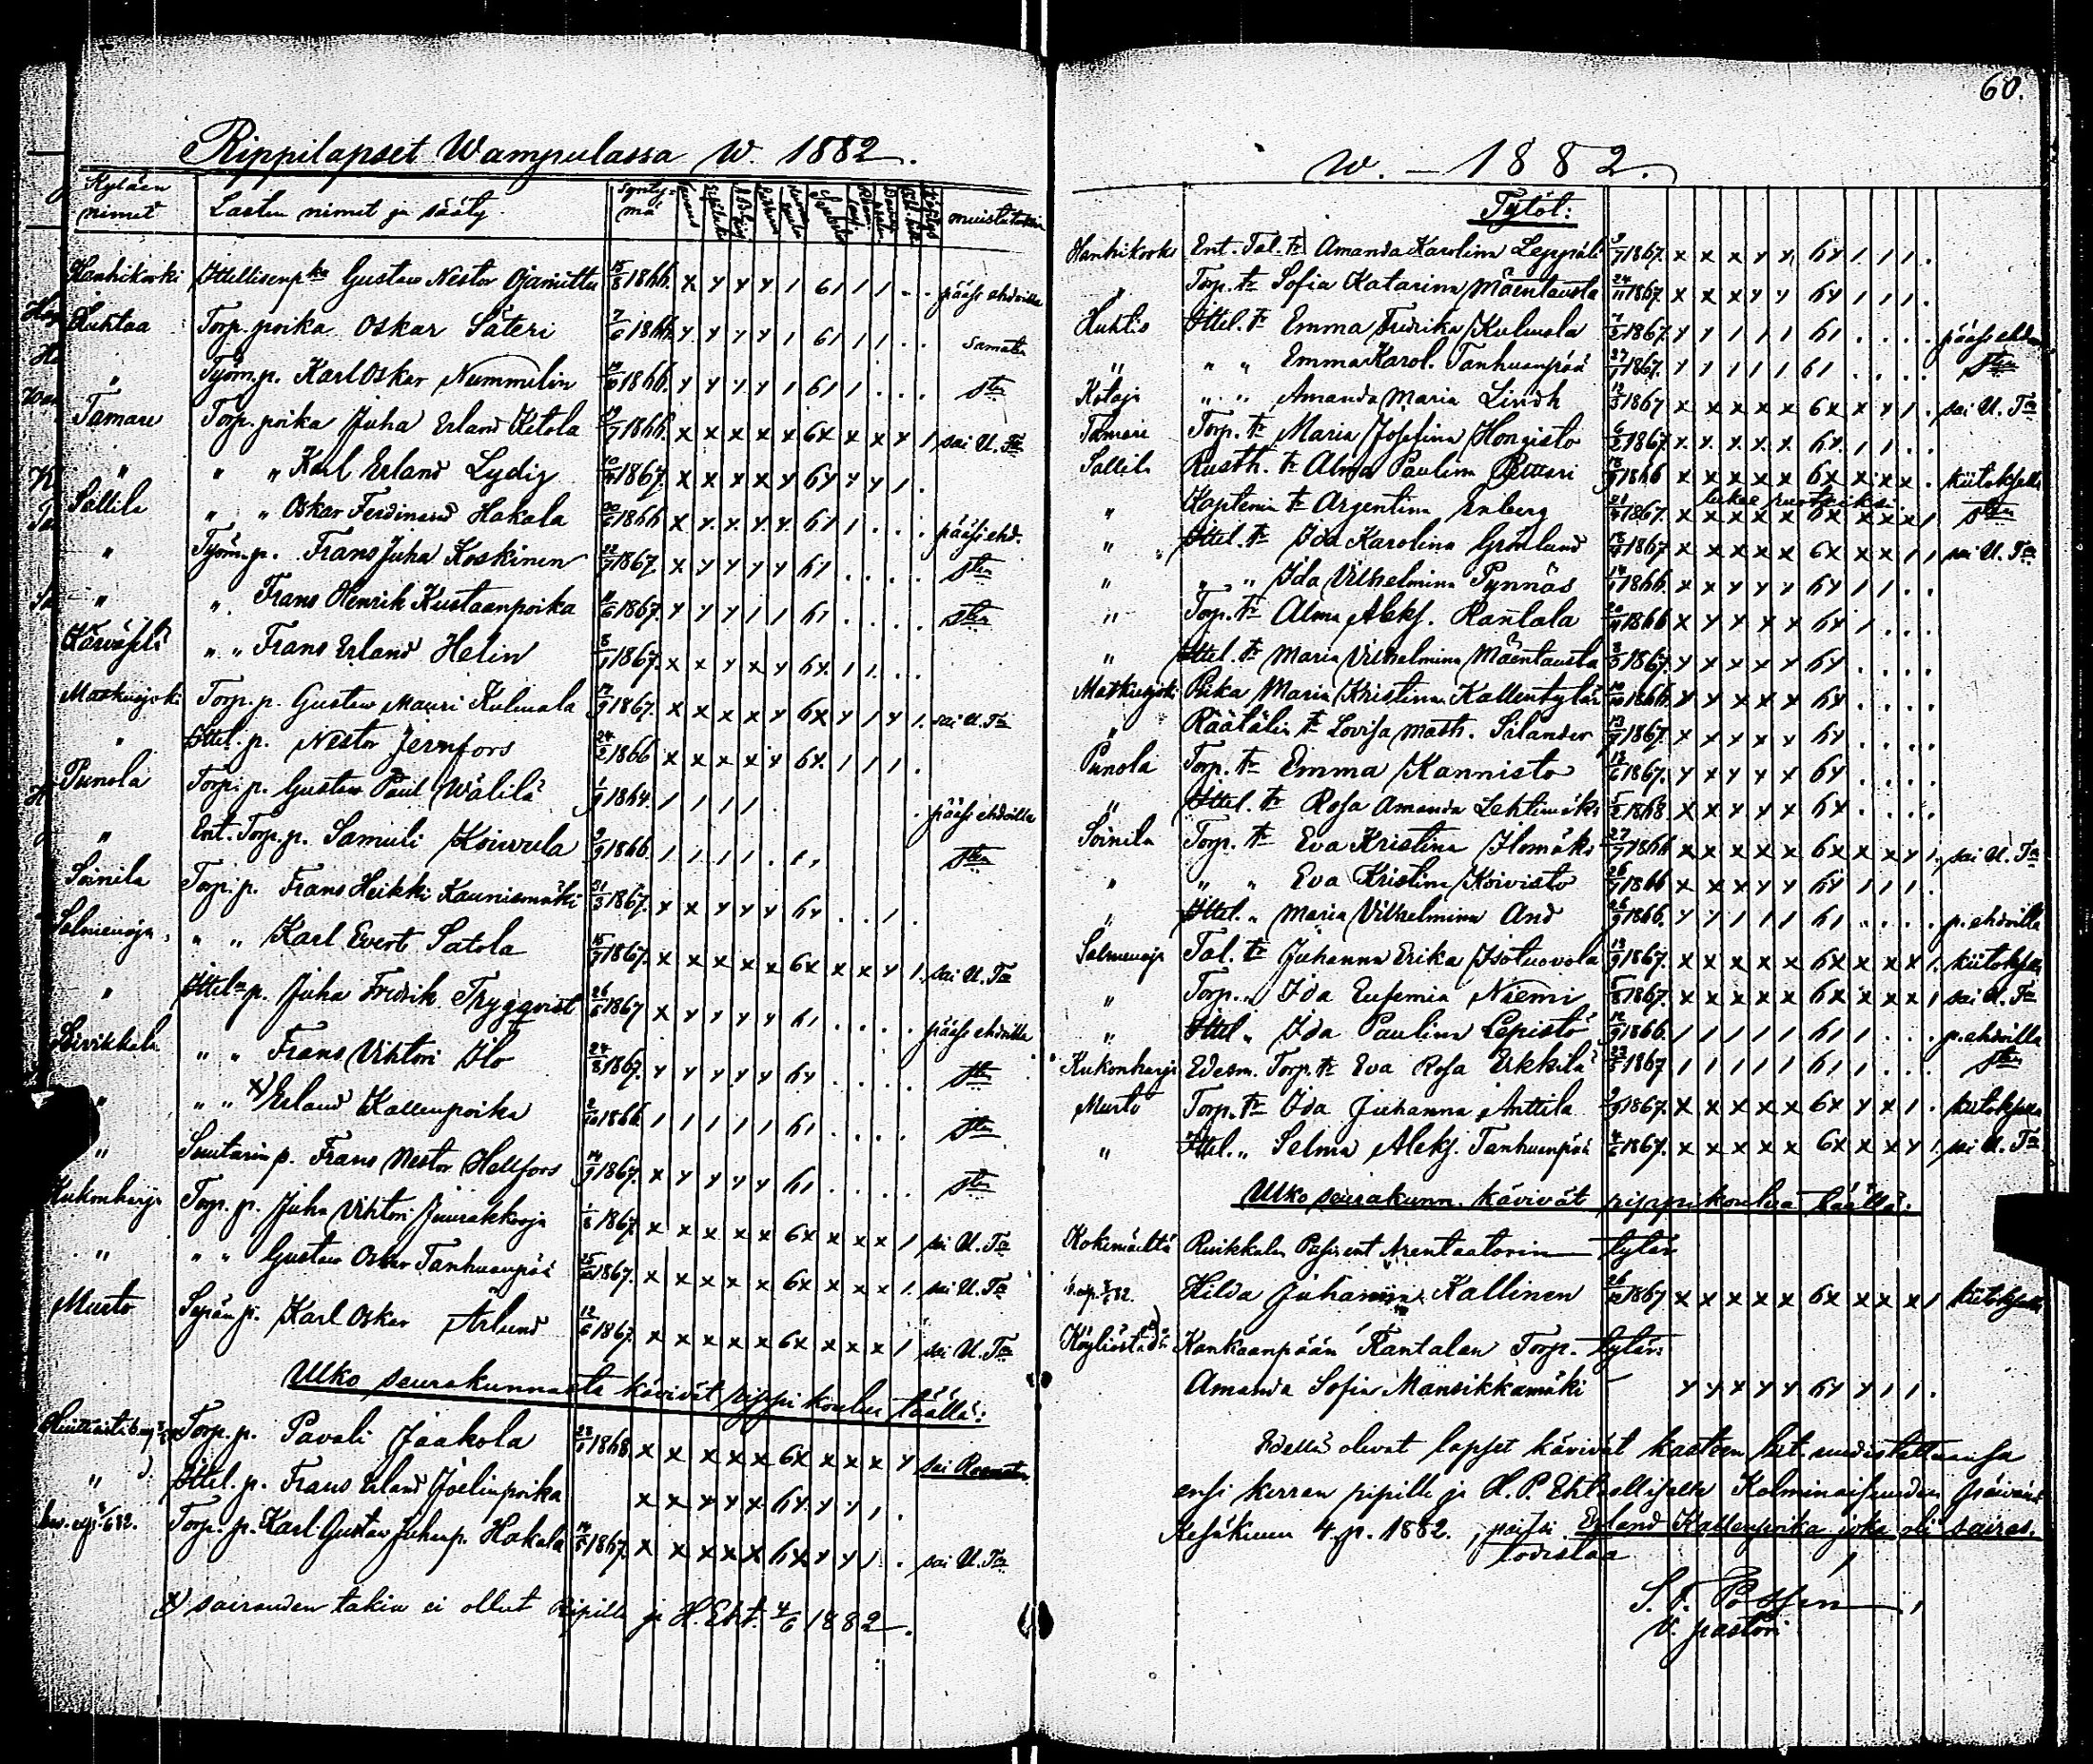 Rippilapset Wampulassa W. 1882.
Kyläen nimet Lasten nimet ja sääty Synty-mä muistutuksia
Hanhikoski Ittellisenp:ka Gustav Nestor Ojanuittu 15/8 1866. x y y y 1 61 1 1 . . pääsi ehdoilla
Huhtaa Torp. poika Oskar Säteri 7/6 1866. y y y y 1 61 1 1 . . samaten
" Työm. p. Karl Oskar Nummelin 1866. y y y y 1 61 1 . . . sten
Tamare Torp. poika Juha Erland Ketola 19/7 1866. x x x x x 6x x x y 1 sai U. Tn
" " " Karl Erland Lydig 1867. x x x x y 6y y y 1 .
Sallila " " Oskar Ferdinand Hakala 1866 x y y y y 61 1 . . . pääsi ehd.
" Työm. p. Frans Juha Koskinen 1867. x y y y y 61 . . . . sten
" " Frans Henrik Kustaanpoika 1867. y y y 1 1 61 . . . . sten
" " Frans Erland Helin 8/1 1867. x x y x y 6y. 1 1 . .
Matkusjoki Torp. p. Gustav Mauri Kulmala 1867. x x x x y 6x y 1 y 1. sai U. Tn
" Ittel. p. Nestor Jernfors 24/2 1866 x x x x y 6y. 1 1 1 .
Punola Torp. p. Gustav Paul Wälilä 1/9 1864. 1 1 1 1 . . pääsi ehdoilla
" Ent. Torp. p. Samuli Koiwula 9/9 1866. 1 1 1 1 . 1, sten
Soinila Torp. p. Frans Heikki Kaunismäki 31/3 1867. x x y y y 6y . . 1 .
Salmenoja " " Karl Evert Satola 1867. x x x x x 6x x x y 1. sai U. Tn
" Ittel. p. Juha Fredrik Trygqvist 1867 x y y y y 61 . . . . pääsi ehdoilla
" " Frans Vihtori Ilo 24/8 1867. y y y y y 6y . . . . sten
" " " x) Erland Kallenpoika 2/10 1866. 1 1 1 1 1 61 . . . . sten
" Suutarin p. Frans Nestor Hellfors 14/9 1867. x y y y y 61 . . . . sten
Kukonharja Torp. p. Juha Vihtori Juurakkooja 1/8 1867. x x x x x 6x x x x 1 sai U. Tn
" " " Gustav Oskar Tanhuanpää 1867. x x x x x 6x x x x 1. sai U. Tn
Murto Sepän p. Karl Oskar Arlund 12/6 1867. x x x x x 6x x x x 1 sai U. Tn
Ulko seurakunnasta kävivät rippikoulua täällä:
Torp. p. Pavali Jaakola 1868. x x x x x 6x x x x y sai
" Ittel. p. Frans Erland Joelinpoika x x y y y 6y. y y 1 .
Torp. p. Karl Gustav Juhanp. Hakala 1867. x x x x x 6x y y 1 . sai U. Tn
x) sairauden takia ei ollut Ripillä ja H. Eht. 4/6 1882.
60.
w. – 1882.
Tytöt:
Hanhikoski Ent. Tal. tr Amanda Karolina Leppäli 9/7 1867. x x x y y. 6y 1. 1 1 .
" Torp. tr Sofia Katarina Mäentausta 24/11 1867. x x x y y 6y 1 1 1 .
Huhtis Ittel. tr Emma Fredrika Kulmala 1867. y y 1 1 1 61 . . . . pääsi ehdoi
" " " Emma Karol. Tanhuanpää 27/1 1867. y 1 1 1 1 61 . . . . sten
Kotoja " " Amanda Maria Lindh 12/3 1867 x x x x x 6x x y 1 . sai U. Tn
Tamare Torp. tr Maria Josefina Hongisto 6/2 1867. x. x. x. x. x. 6y. 1 1 . .
Sallila Rusth. tr Alma Paulina Pettari 1866 x x x x x 6x x x x . kiitoksella
lukee ruotsiksi
" Kaptenin tr Argentina Enberg 1867. x x x x x 6x x x x 1 sten
" Ittel. tr Ida Karolina Grönlund 1867 x x x x x 6x x x 1 1 sai U. Tn
" " " Ida Vilhelmina Pynnäs 1866. x x y y y 6y 1 1 . .
" Torp. tr Alma Aleks. Rantala 1866 x y y x x 6y 1 . . .
" Ittel. tr Maria Vilhelmina Mäentausta 8/3 1867. y x x y y 6y . . . .
Matkusjoki Piika Maria Kristina Kallentytär 1866. y y x y y 6y . . . .
" Räätälin tr Lovisa Math. Salander 1867. x y y y y 6y . . . .
Punola Torp. tr Emma Kannisto 1867. y x y y y 6y . . . .
" Ittel. tr Rosa Amanda Lehtimäki 5/2 1868. x x y y y 6y . . . .
Soinila Torp. tr Eva Kristina Ilomäki 27/7 1866 x x x x x 6x x x y 1. sai U. Tn
" " " Eva Kristina Koivisto 1866 x x x y y 6y 1 1 1 .
" Ittel. " Maria Vilhelmina And 26/9 1866. y y 1 1 1 61 . . . . p. ehdoilla
Salmenoja Tal. tr Juhanna Erika Isotuovola 13/9 1867. x x x x x 6x x x x 1. kiitoksella
" Torp. " Ida Eufemia Niemi 5/8 1867. x x x x x 6x x x x 1 sai U. Tn
" Ittel. " Ida Paulina Lepistö 12/9 1866. 1 1 1 1 1 61 1 . . . p. ehdoilla
" Kukonharja Edesm. Torp. tr Eva Rosa Erkkilä 1867 1 1 1 1 1 61 1 . . . sten
Murto Torp. tr Ida Juhanna Anttila 2/9 1867. x x x x x 6x y x 1 . kiitoksella
" Ittel. " Selma Aleks. Tanhuanpää 1867. x x x x x 6x x x y 1. sai U. Tn
Ulko seurakunn. kävivät rippikoulua täällä:
Kokemäeltä Ruikkalan Arentaatorin tytär
Hilda Juhanna Kallinen 1867 x x x x x 6x x x x 1 kiitoksella
Köyliöstä Kankaanpään Rantalan Torp. tytär:
Amanda Sofia Mansikkamäki – y y x y y 6y y 1 1 .
Edellä olevat lapset kävivät kasteen liit. uudistettuansa
ensi kerran ripille ja H. P. Ehtoollisella Kolminaisuuden päivänä
Kesäkuun 4. p. 1882., paitsi Erland Kallenpoika joka oli sairas.
todistaa
V. pastori